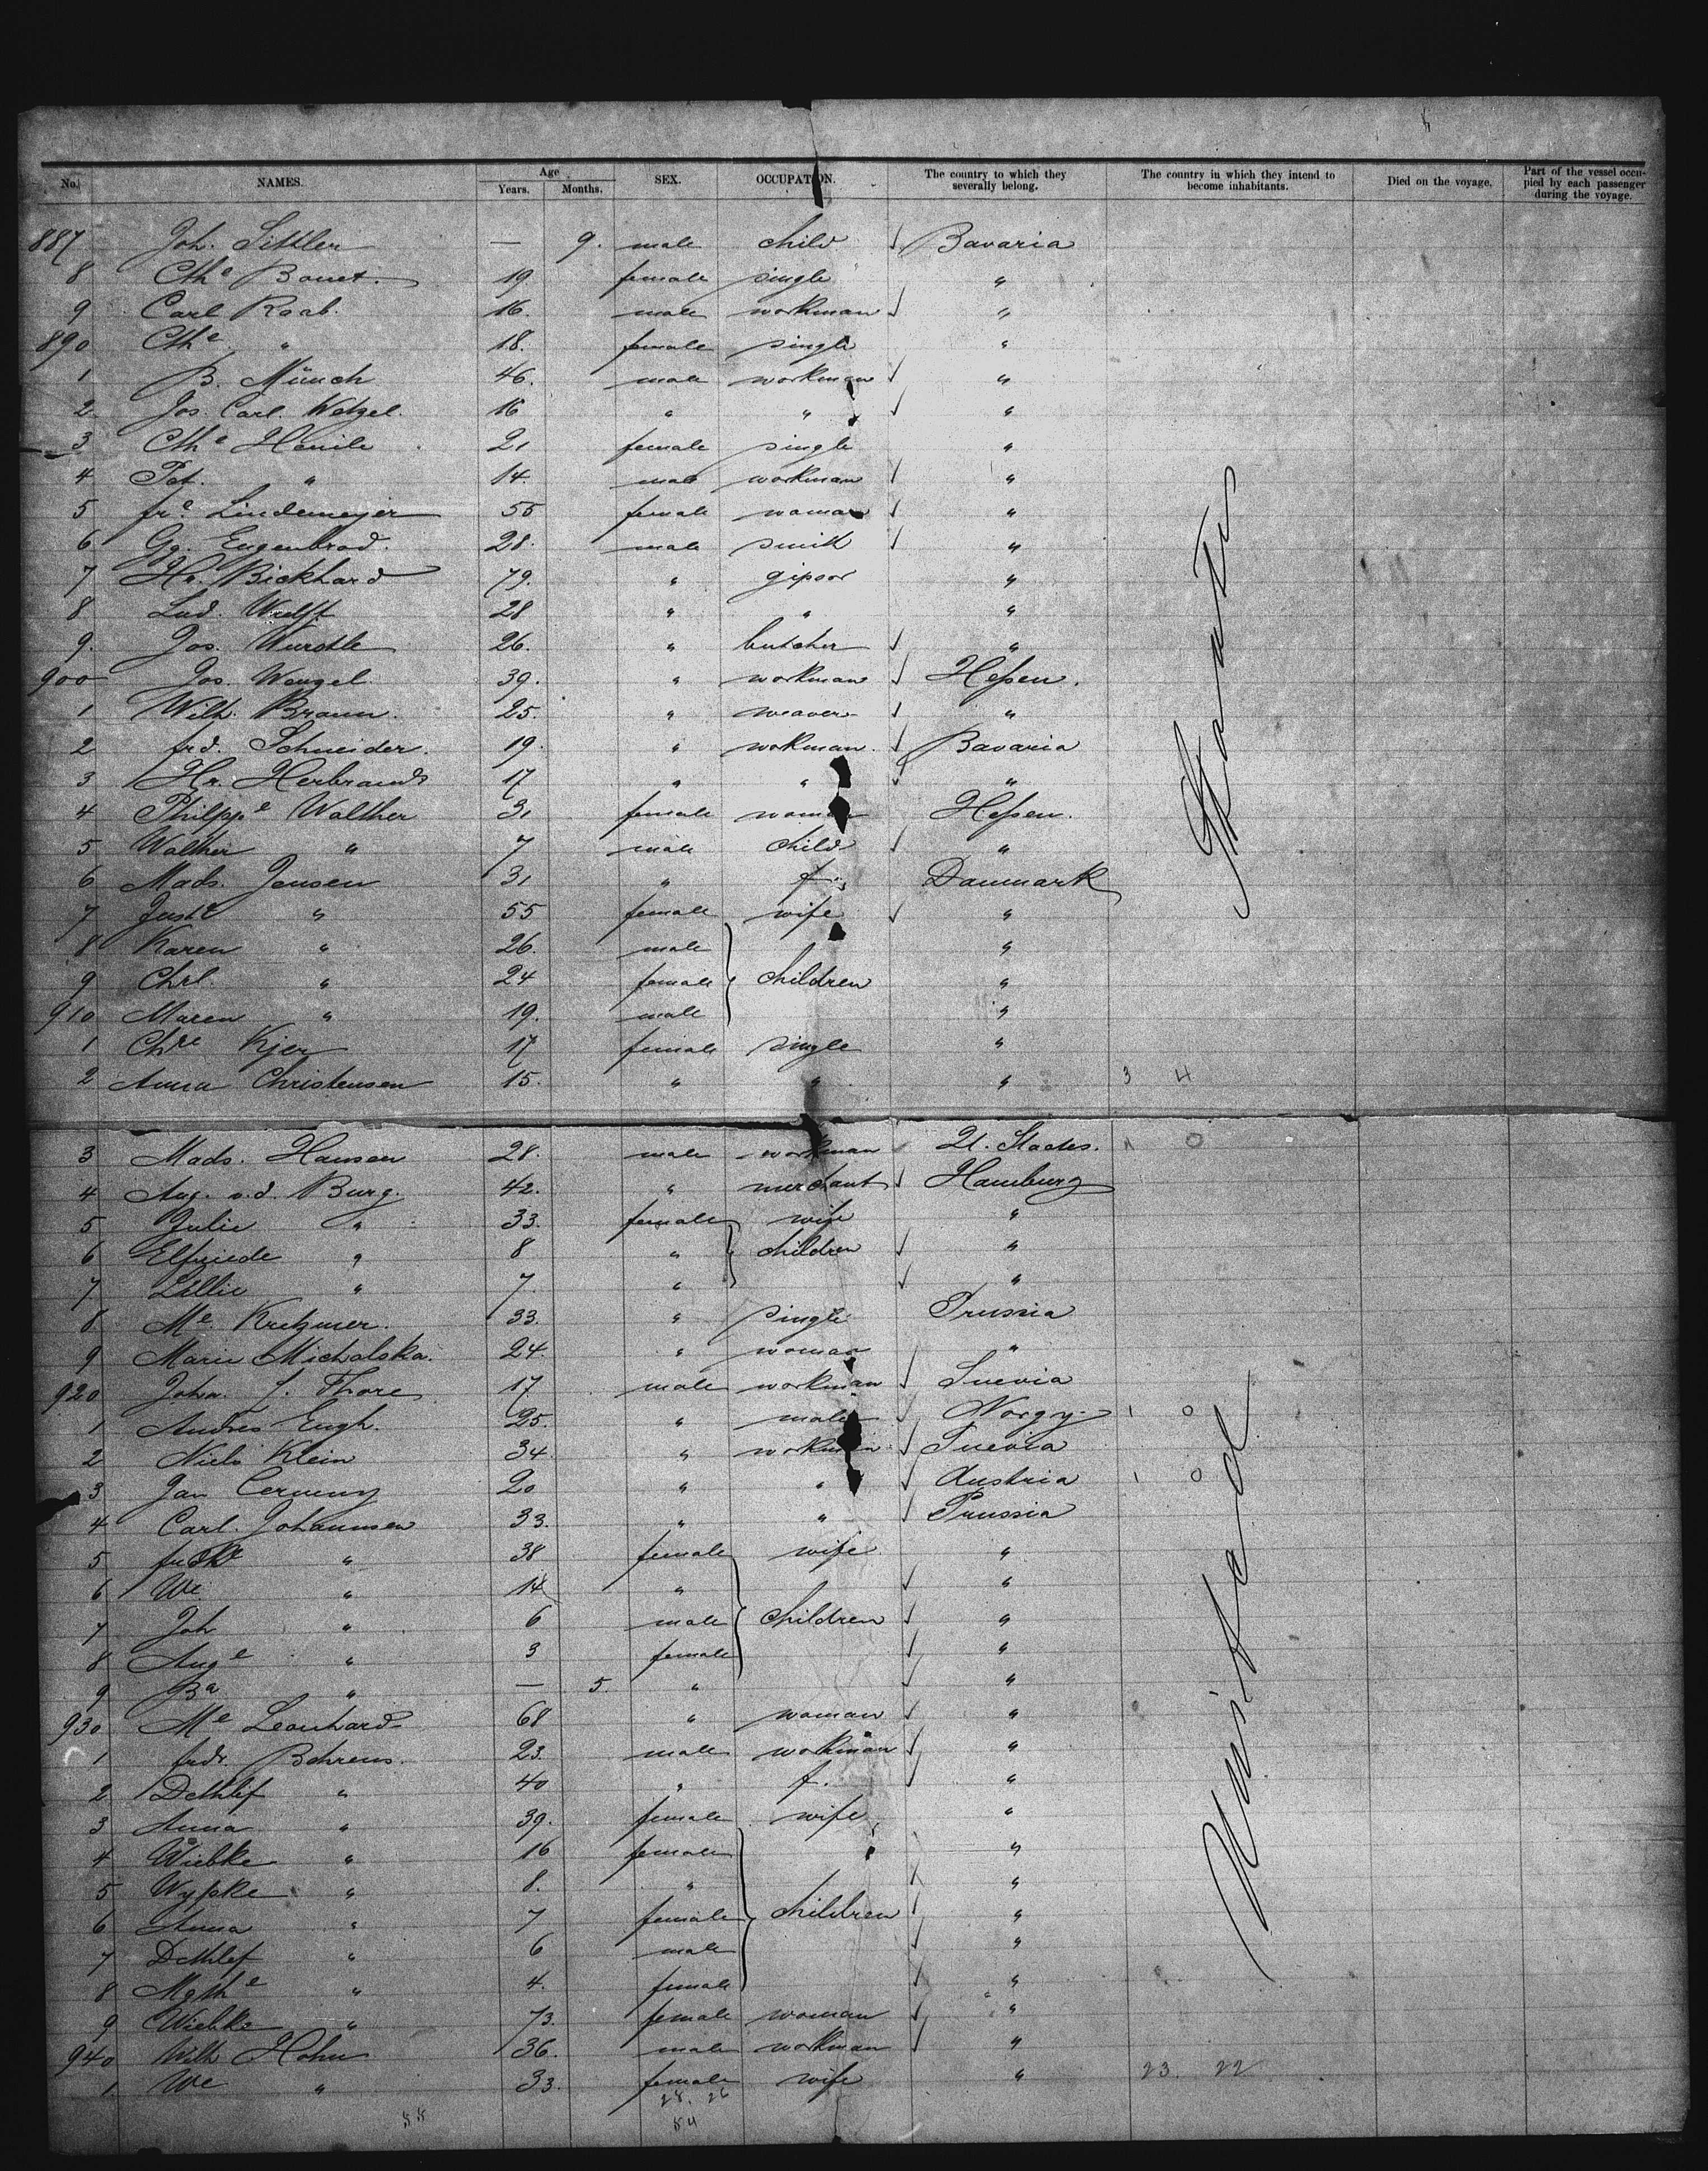 No. NAMES. Age Years. Months. SEX. OCCUPATION. The country to which they severally belong. The country in which they intend to become inhabitants. Died on the voyage. Part of the vessel occupied by each passenger during the voyage.
887 Joh. Sittler — 9. male child ✓ Bavaria
8 Cthe Bouet. 19 female single "
9 Carl Raab. 16. male workman ✓ "
890 Cthe " 18. female single "
1 B. Münch 46. male workman ✓ "
2 Jos. Carl. Wetzel. 16 " " ✓ "
3 Cthe 21 female single "
4 Pet. " 14. male workman ✓ "
5 fre Lindemeyer 55 female woman ✓ "
6 Gg. Eugenbrod. 28. male smith ✓ "
7 Hr. Bickhard 79. " gipsor "
8 Lud. 28 " " "
9. Jos. Wurstle 26. " butcher ✓ "
900 Jos. Wenzel 39. " workman ✓ Heſsen.
1 Wilh. Braun. 25. " weaver ✓ "
2 frd. Schneider. 19. " wokman. ✓ Bavaria
3 Hr. Herbrands 17 " " ✓ "
4 Philppe Walther 31 female woman Heſsen.
5 Walther " 7 male child ✓ "
6 Mads. Jensen 31 " f. Danmark
7 Juste " 55 female wife ✓ "
8 Karen " 26. male "
9 Chrl. " 24 female } children "
910 Maren " 19. male "
1 Chre Kjer 17 female single "
2 Anna Christensen 15. " " " 3 4
3 Mads. Hansen 28. male workman ✓ U. Staates. 1 0
4 Aug. v.d. Burg. 42. " merchant ✓ Hamburg
5 Julie " 33. female wife "
6 Elfriede " 8 " } children ✓ "
7 Lillie " 7. " ✓ "
8 Me. Kretzmer. 33. " single Prussia
9 Marie Michalska. 24. " woman "
920 Joha. J. Thore 17 male workman ✓ Suevia
1 Andres Engh. 25. " male ✓ Norgy. 1 0
2 Niels Klein 34. " workman ✓ Suevia
3 Jan Cerveny 20 " " ✓ Austria 1 0
4 Carl. Johannsen 33. " " ✓ Prussia
5 " 38 female wife "
6 We. " 14 " ✓ "
7 Joh " 6 male } children ✓ "
8 Auge " 3 female ✓ "
9 Ba " — 5. " ✓ "
930 Me Leonhard 68 " woman ✓ "
1 frdr. Behrens. 23. male workman ✓ "
2 Dethlef " 40 " f. ✓ "
3 Anna " 39. female wife "
4 Wiebke " 16 female "
5 Wypke " 8. " ✓ "
6 Anna " 7 female } children ✓ "
7 Dethlef " 6 male ✓ "
8 Mgthe " 4. female ✓ "
9 Wiebke " 73. female woman ✓ "
940 Wilh Hohn 36. male workman ✓ "
1. We " 33. female wife " 23. 22
28. 26
54
United Staates